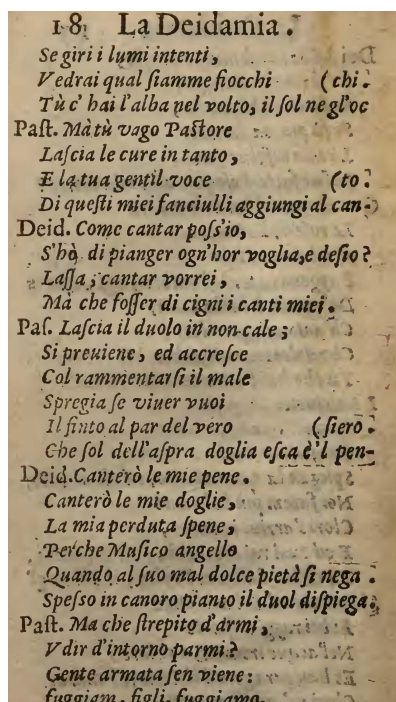 18. La Deidamia.
Se giri i lumi intenti,
Vedrai qual fiamme fiocchi (chi.
Tù c' hai l'alba nel volto, il ſol ne gl'oc
Paſt. Mà tù vago Paſtore
Laſcia le cure in tanto,
E la tua gentil voce (to.
Di queſti miei fanciulli aggiungi al can-
Deid. Come cantar poſs'io,
S'hò di pianger ogn'hor voglia, e deſio?
Laſſa, cantar vorrei,
Mà che foſſer di cigni i canti miei.
Paſ. Laſcia il duolo in non cale;
Si preuiene, ed accreſce
Col rammentarſi il male
Spregia ſe viuer vuoi
Il finto al par del vero (ſiero.
Che ſol dell'aſpra doglia eſca è 'l pen-
Deid. Canterò le mie pene.
Canterò le mie doglie,
La mia perduta ſpene;
Perche Muſico angello
Quando al ſuo mal dolce pietà ſi nega.
Speſso in canoro pianto il duol diſpiega.
Paſt. Ma che ſtrepito d'armi,
Vdir d'intorno parmi?
Gente armata ſen viene:
fuggiam, figli, fuggiamo.